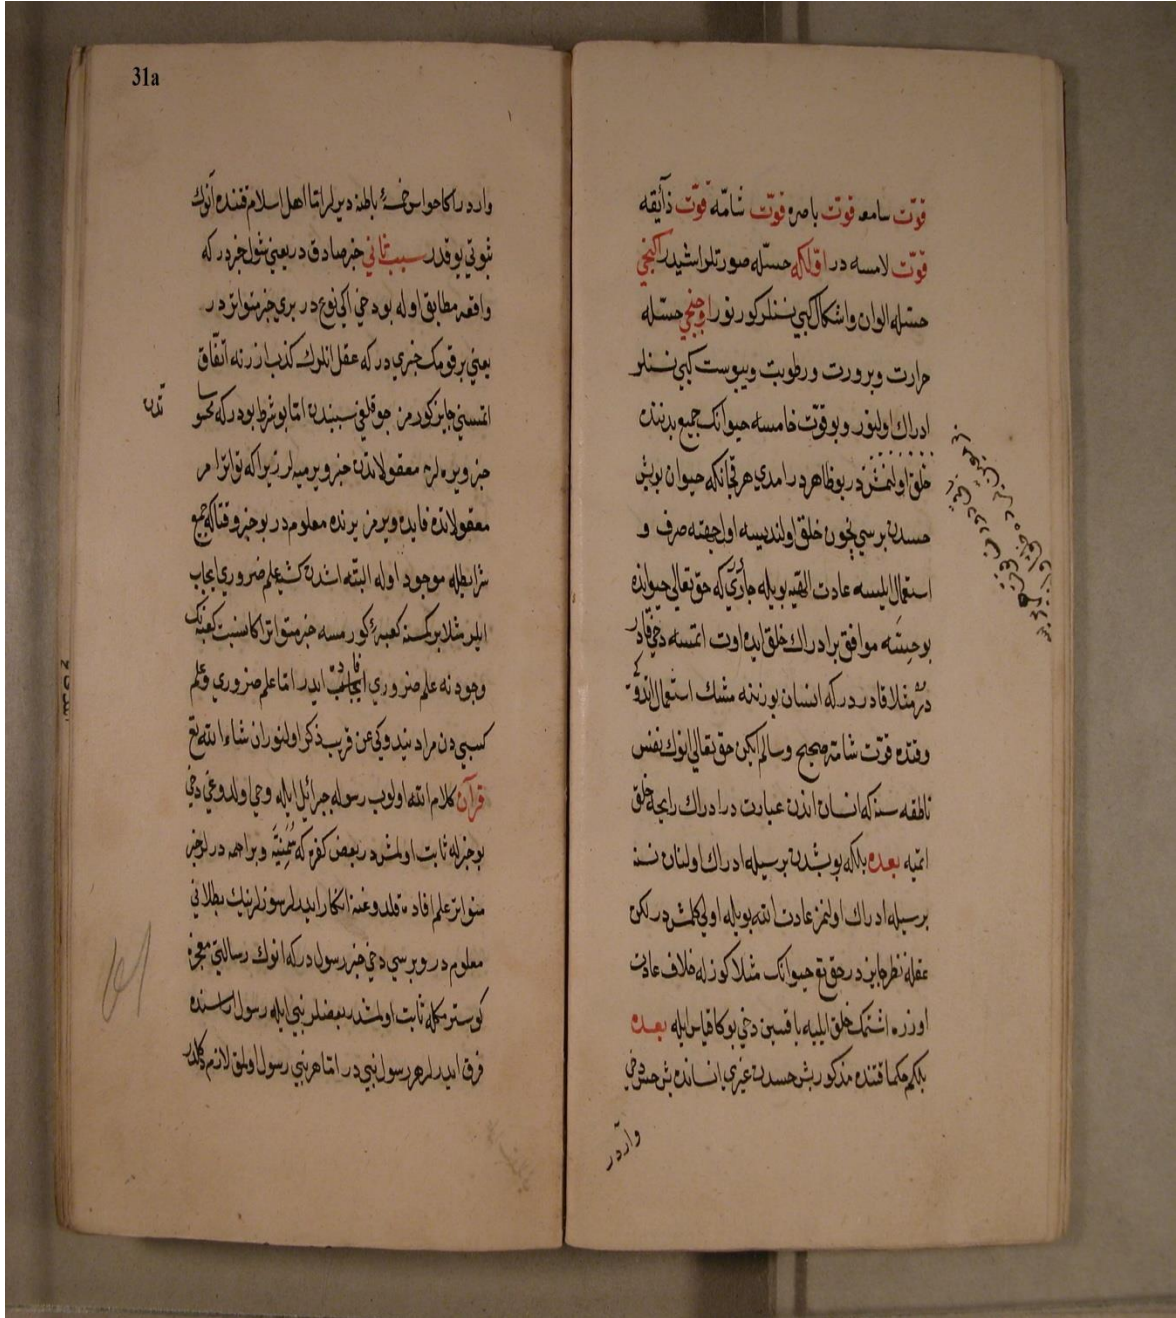 قوّت سامعه قوت باصره قوّت شامّه قوّت ذآئقه
قوّت لامسه در اوّلكه حسّله صوتلر اشيدر اكنجي
حسّله الوان واشكال كبي نسنلر كورنور اوچنجي حسّله
حرارت وبرودت ورطوبت ويبوست كبي نسنلر
ادراك اولنور وبو قوّت خامسه حيوانك جميع بدننده
خلق اولنمشدر بو ظاهردر امدي هر قچانكه حيوان بو بش
حسدن برسي نچون خلق اولنديسه اول جهته صرف و
استعمال ايلسه عادت الهيه بويله جاري كه حق تعالي حيوانده
بو حسّنه موافق بر ادراك خلق ايده اوت اتمسه دخي قادر
در مثلا قادردركه انسان بورننه مشك استعمال اتدوكي
وقتده قوّت شامّه صحيح وسالم ايكن حق تعالي انوك نفس
ناطقه سنه كه انسان اندن عبارتدر ادراك رايحه خلق
اتميه بعده بلكه بو بشدن برسيله ادراك اولنان نسنه
برسيله ادراك اولنمز عادت الله بويله اولي كلمشدر لكن
عقله نظر جايزدر حق تع حيوانك مثلا كوزله خلاف عادت
اوزره اشتمك خلق ايليه باقيسن دخي بوكا قياس ايله بعده
بلكم حكما قتنده مذكور بش حسدن غيري انسانده بش حس دخي
واردر
31a
واردر اكا حواس خمسهٔ باطنه ديرلر امّا اهل اسلام قتنده انوك
ثبوتي يوقدر سبب ثاني خبر صادقدر يعني شول خبردركه
واقعه مطابق اوله بو دخي ايكي نوعدر بري خبر متواتردر
يعني بر قومك خبريدركه عقل انلوك كذب اوزرنه اتّفاق
اتمسني جايز كورمز چوقلغي سببندن امّا بو شرط بودركه محسوسا
تدن
خبر ويره لر معقولاتدن خبر ويرميه لر زيرا كه تواتر امر
معقولاتده فايده ويرمز يرنده معلومدر بو خبر وقتاكه جميع
شرايطله موجود اوله البته اشدن كشيه علم ضروري ايجاب
ايلر مثلا بر كمسه كعبهٔ كورمسه خبر متواتر اكا نسبت كعبه نك
وجودنه علم ضروري ايجاب ايدر امّا علم ضروري وعلم
كسبيدن مراد نيدوكي عن قريب ذكر اولنور ان شاء الله تع
قرآن كلام الله اولوب رسوله جبرائل ايله وحي اولدوغي دخي
بو خبرله ثابت اولمشدر بعض كفره كه سُمَنِيَّه وبراهمه درلر خبر
متواتر علم افاده قلدوغنه انكار ايدرلر سوزلرينك بطلاني
معلومدر وبرسي دخي خبر رسولدركه انوك رسالتي معجزه
كوسترمكله ثابت اولمشدر بعضلر نبي ايله رسول اراسنده
فرق ايدرلر هر رسول نبيدر امّا هر نبي رسول اولمق لازم دكلدر